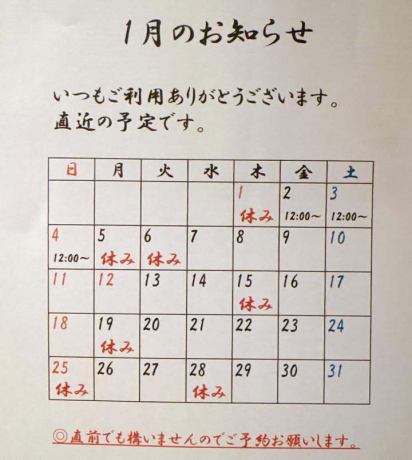 1月のお知らせ
いつもご利用ありがとうございます。
直近の予定です。
日 月 火 水 木 金 土
1 2 3
休み 12:00～ 12:00～
4 5 6 7 8 9 10
12:00～ 休み 休み
11 12 13 14 15 16 17
休み
18 19 20 21 22 23 24
休み
25 26 27 28 29 30 31
休み 休み
◎直前でも構いませんのでご予約お願いします。